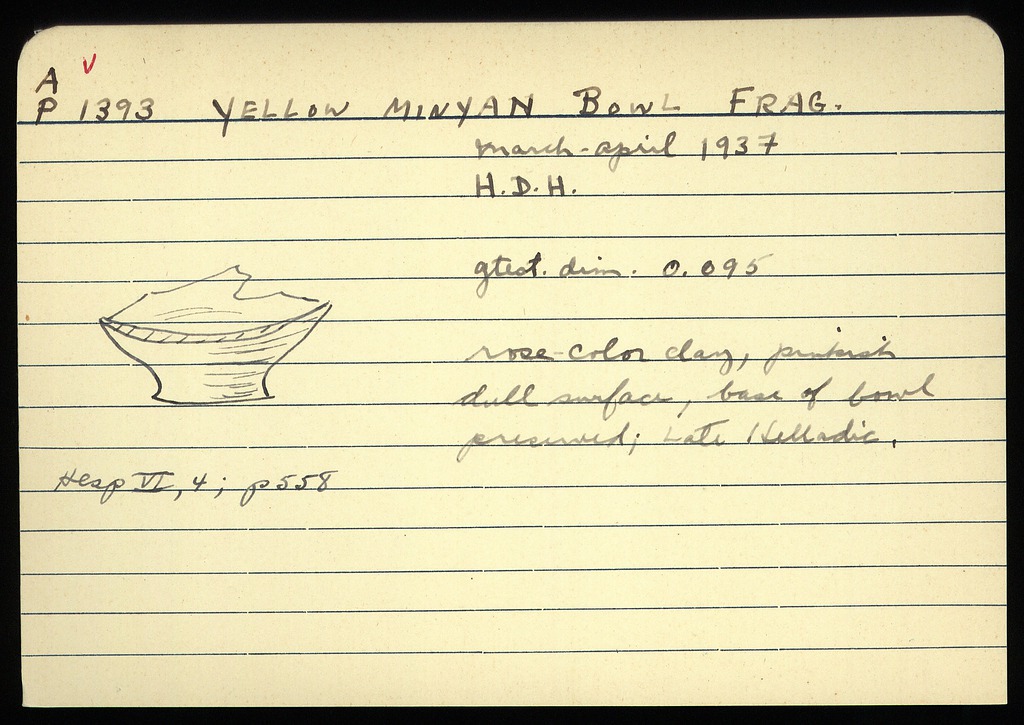 A V
P 1393 YELLOW MINYAN BOWL FRAG.
March-april 1937
H.D.H.
gtest. dim. 0.095
rose-color clay, pinkish
dull surface, base of bowl
preserved; Late Helladic.
Hesp VI, 4; p558